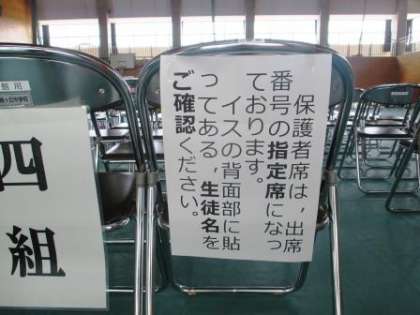 保護者席は，出席
番号の指定席になっ
ております。
イスの背面部に貼
ってある，生徒名を
ご確認ください。
四組